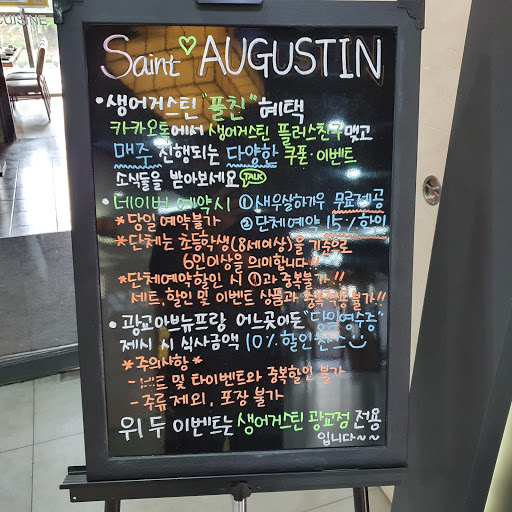 CUISINE
Saint AUGUSTIN
• 생어거스틴 "플친" 혜택
카카오톡에서 생어거스틴 플러스친구 맺고
매주 진행되는 다양한 쿠폰·이벤트
소식들을 받아보세요 TALK
• 네이버 예약시 ①새우살하가우 무료제공
*당일예약불가 ②단체예약 15% 할인
*단체는 초등학생(8세이상)을 기준으로
6인이상을 의미합니다!!
*단체예약할인 시 ①과 중복불가!!
세트, 할인 및 이벤트 상품과 중복적용불가!!
• 광교아브뉴프랑 어느곳이든 "당일영수증"
제시 시 식사금액 10% 할인
*주의사항*
- 세트 및 타이벤트와 중복할인 불가
- 주류 제외, 포장 불가
위 두 이벤트는 생어거스틴 광교점 전용
입니다~~